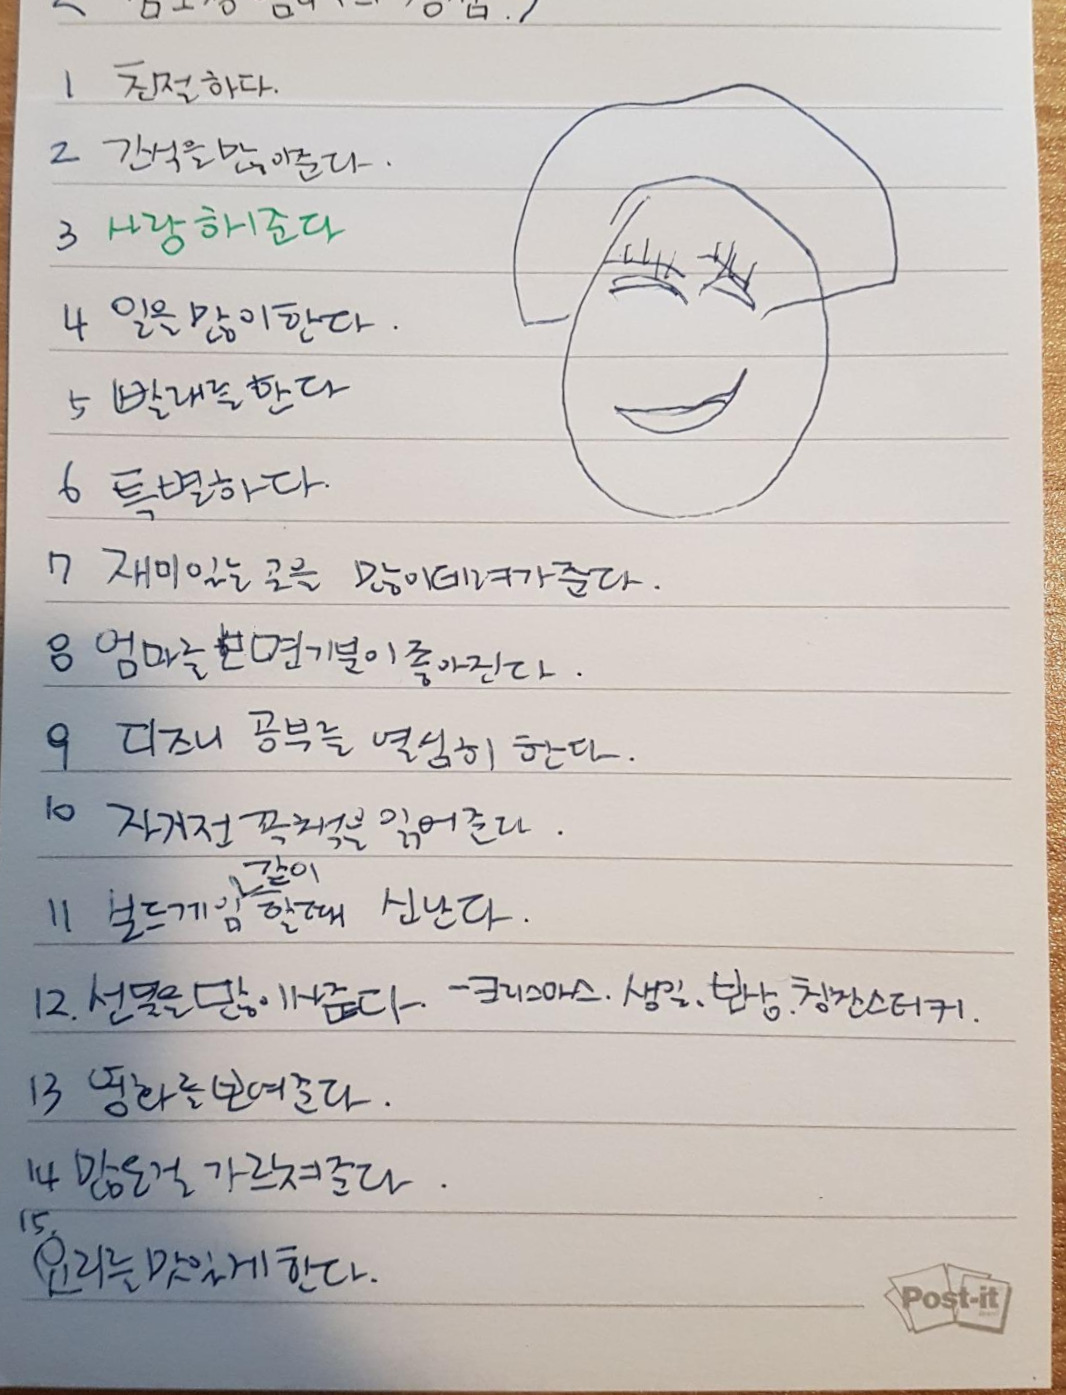 1 친절하다.
2 간식을 많이준다.
3 사랑해준다
4 일을 많이한다.
5 빨래를 한다
6 특별하다.
7 재미있는 곳을 많이데려가준다.
8 엄마를 보면기분이좋아진다.
9 디즈니 공부를 열심히 한다.
10 자기전 꼭책을 읽어준다.
11 보드게임 같이 할때 신난다.
12. 선물을 많이사준다. -크리스마스. 생일. 보상. 칭찬스티커.
13 영화를보여준다.
14 많은걸 가르쳐준다.
15. 요리를맛있게한다.
Post-it